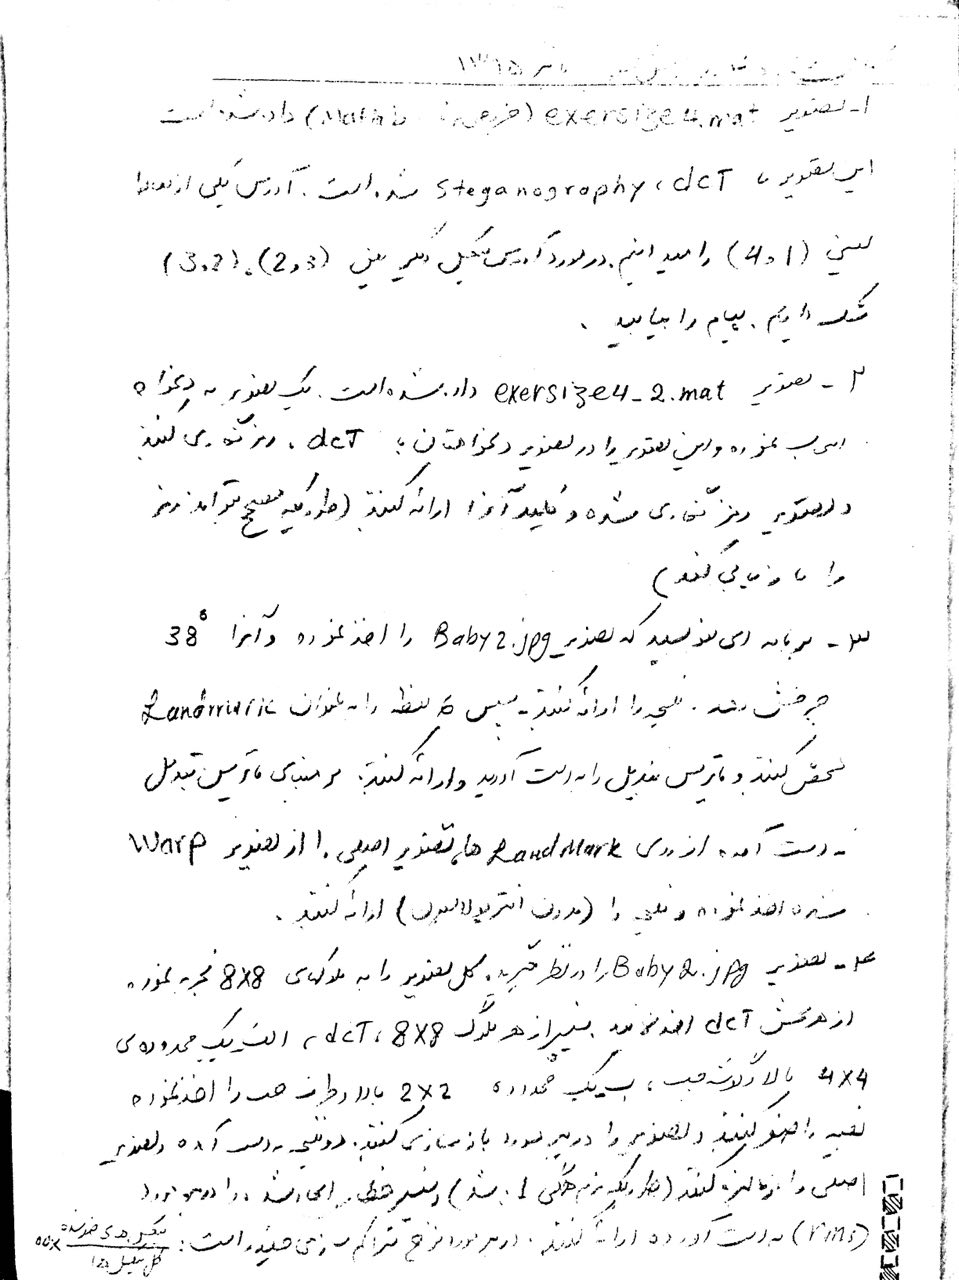 ۱۳۹۵
۱- تصویر exersize4.mat (خروجی Matlab) داده شده است
این تصویر با dcT، Steganography شده است. آدرس یکی از نقاط
یعنی (4,1) را میدانیم. در مورد آدرس پیکسل دیگر یعنی (2,3)، (3,2)
شک داریم. پیام را بیابید.
۲- تصویر exersize4_2.mat داده شده است. یک تصویر به دلخواه
انتخاب نموده و این تصویر را در تصویر دلخواهتان با dcT، رمز نگاری کنید
و تصویر رمز نگاری شده و کلید آنرا ارائه کنید (طوریکه مصحح بتواند رمز
را بازیابی کند)
۳- برنامه ای بنویسید که تصویر Baby2.jpg را اخذ نموده و آنرا 38°
چرخش دهد. نتیجه را ارائه کنید. سپس نقطه را به عنوان Landmark
مشخص کنید و ماتریس تبدیل را به دست آورید و ارائه کنید. بر مبنای ماتریس تبدیل
به دست آمده از روی LandMark ها، تصویر اصلی را از تصویر Warp
شده اخذ نموده و نتایج را (بدون انترپولاسیون) ارائه کنید.
۴- تصویر Baby2.jpg را در نظر بگیرید. کل تصویر را به بلوکهای 8X8 تجزیه نموده
از هر بخش dcT اخذ نمایید. سپس از هر بلوک 8X8، dcT، الف یک محدوده ی
4X4 بالا گوشه چپ، ب یک محدوده 2X2 بالا و طرف چپ را اخذ نموده
بقیه را صفر کنید و تصویر را در هر مورد بازسازی کنید. دو نتیجه به دست آمده و تصویر
اصلی را نرمالیزه کنید (طوریکه نرم همگی 1 باشد) و سپس خطا را در هر مورد
(rms) به دست آورده ارائه کنید. در هر مورد نرخ تراکم سازی چقدر است: